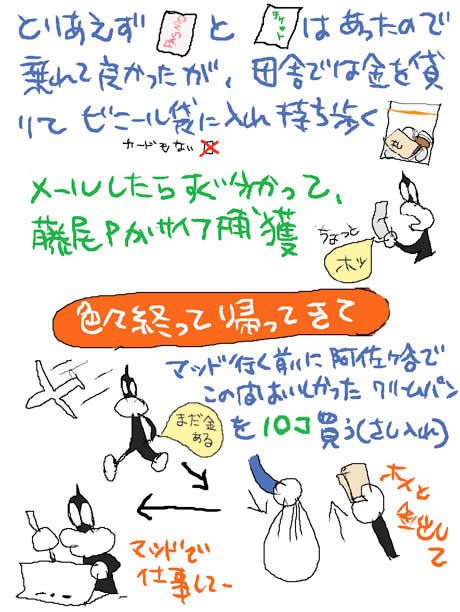 とりあえず PASSPO と チケット はあったので
乗れて良かったが、田舎では金を貸
りて ビニール袋に入れ持ち歩く
カードもない
札
メールしたらすぐ分かって、
藤尾Pがサイフ捕獲
ちょっと
ホッ
色々終って帰ってきて
マッド行く前に阿佐ヶ谷で
この間おいしかったクリームパン
を10コ買う(さし入れ)
まだ金
ある
ホイと
金出して
マッドで
仕事してー